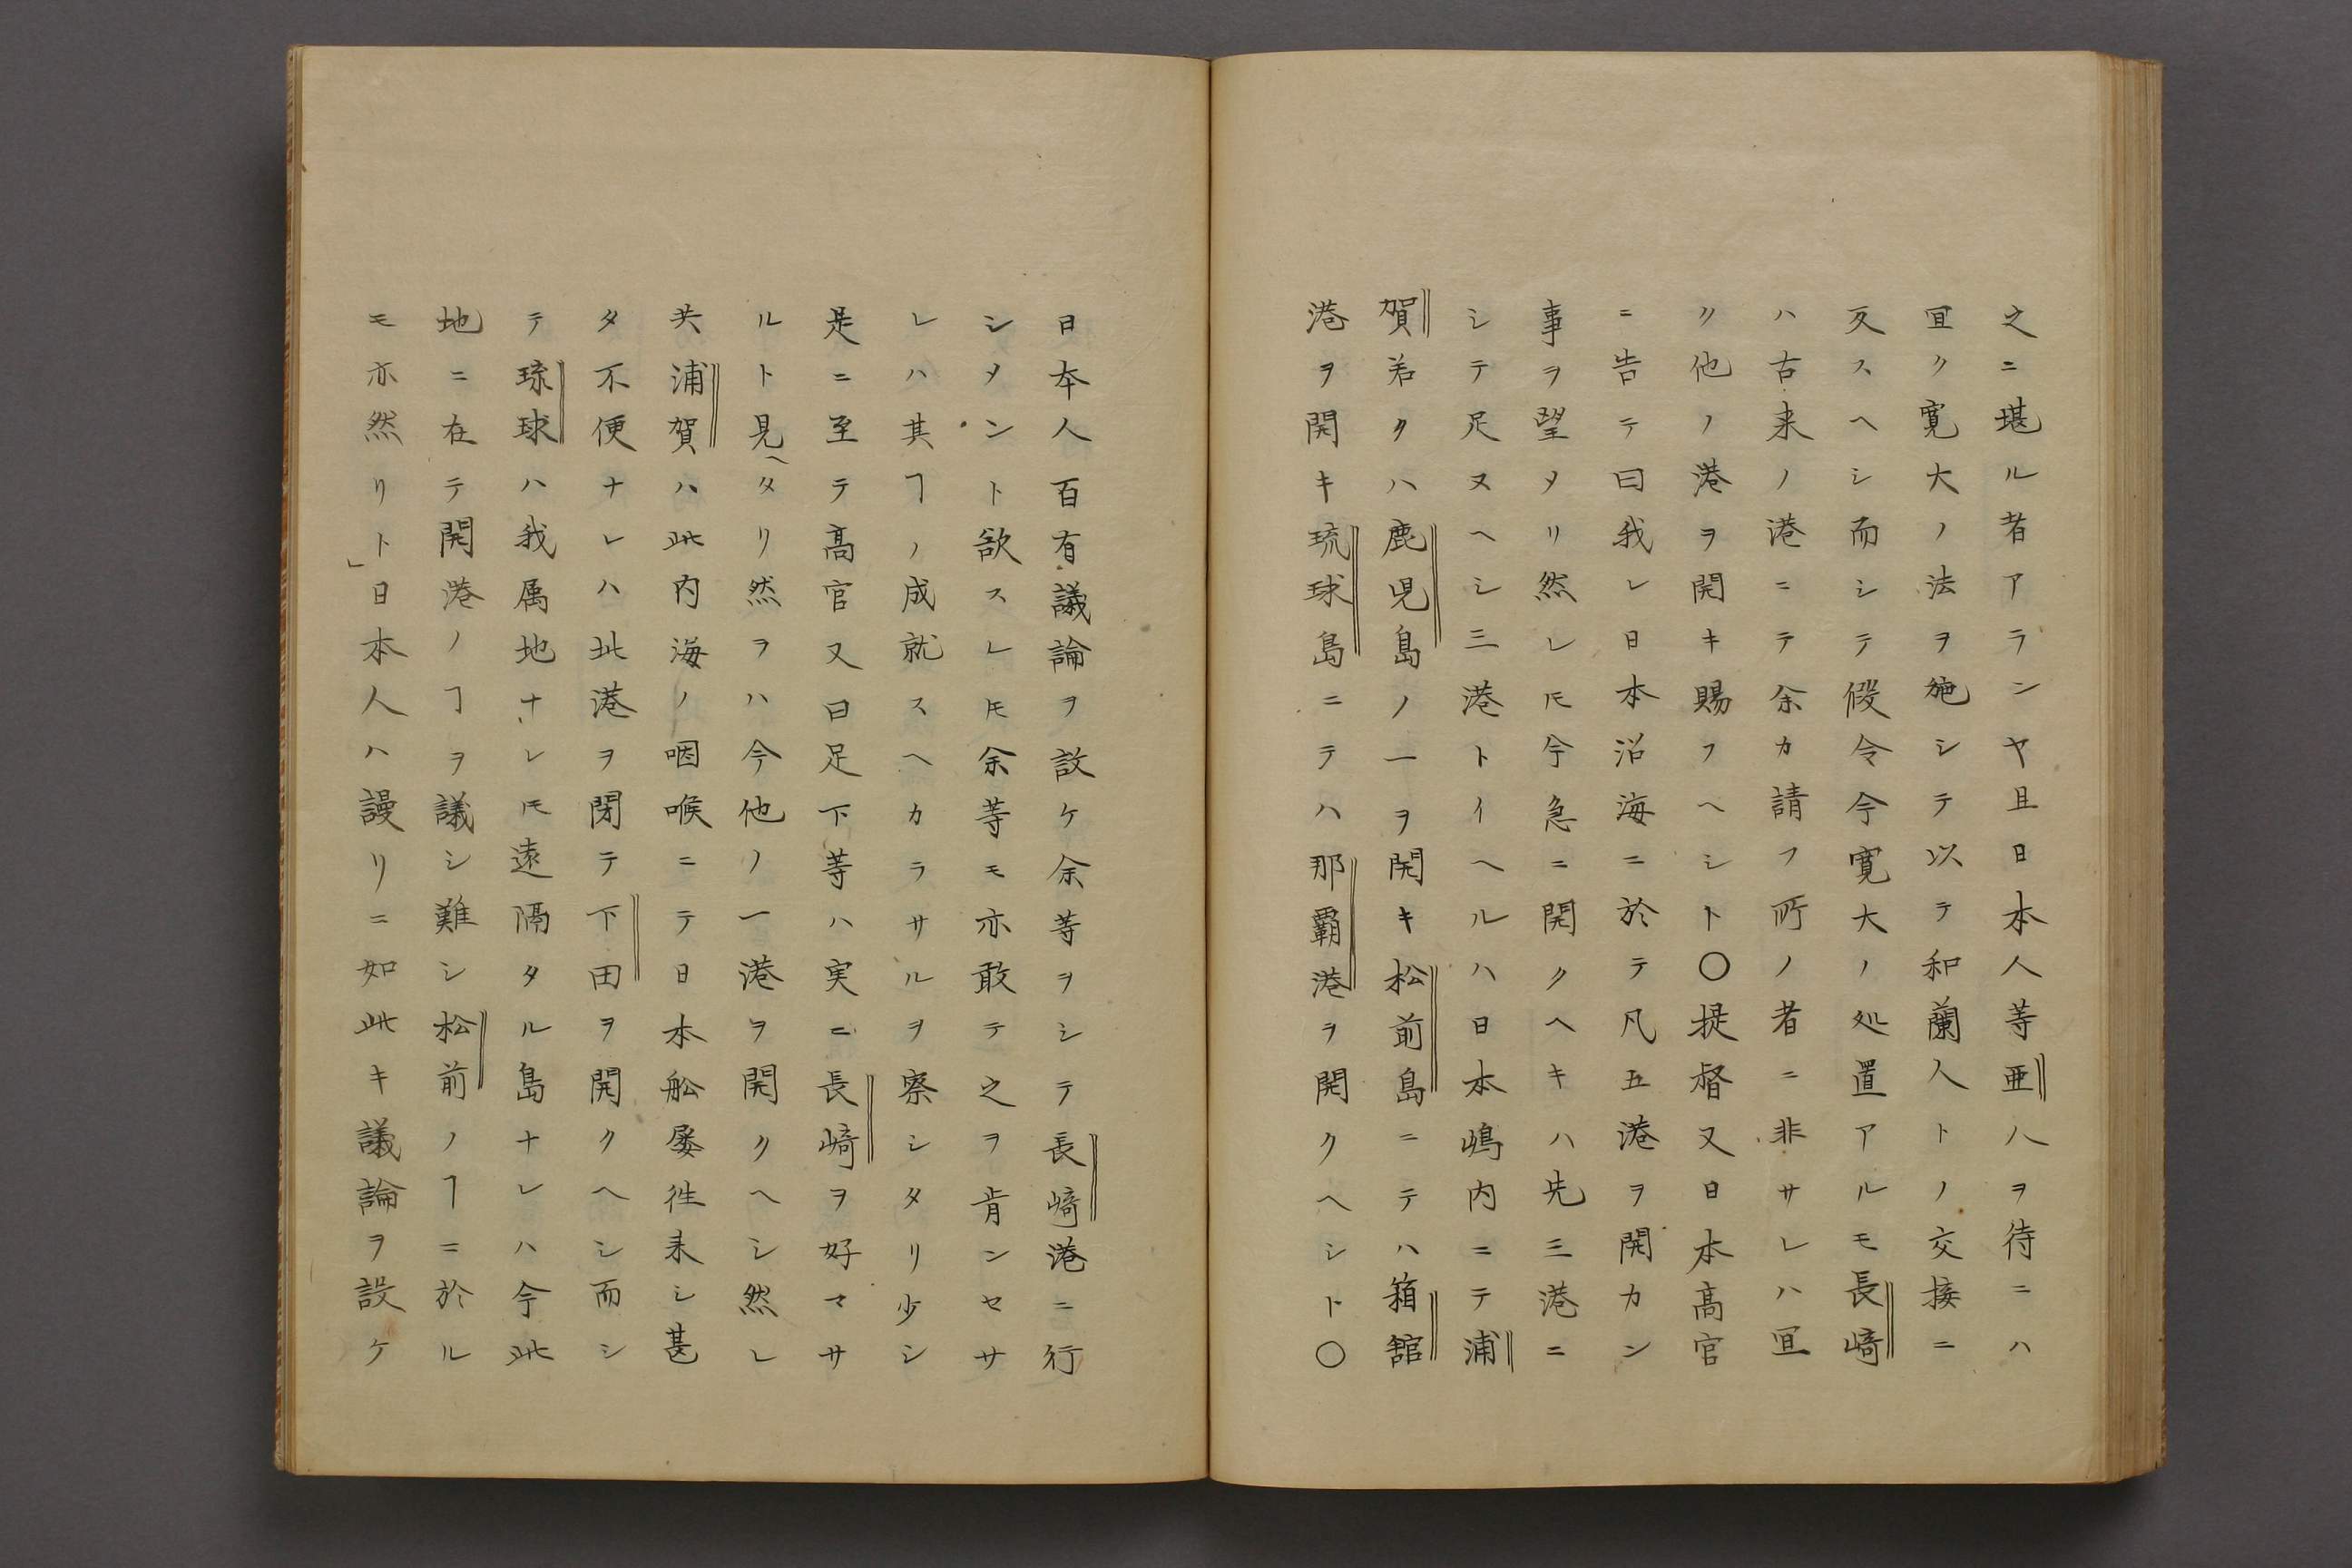 之ニ堪ル者アランヤ且日本人等亜人ヲ待ニハ
宜ク寛大ノ法ヲ施シテ以テ和蘭人トノ交接ニ
反スヘシ而シテ假令今寛大ノ処置アルモ長﨑
ハ古来ノ港ニテ余カ請フ所ノ者ニ非サレハ宜
ク他ノ港ヲ開キ賜フヘシト〇提督又日本髙官
ニ告テ曰我レ日本沿海ニ於テ凡五港ヲ開カン
事ヲ望メリ然レ𪜈今急ニ開クヘキハ先三港ニ
シテ足ヌヘシ三港トイヘルハ日本嶋内ニテ浦
賀若クハ鹿児島ノ一ヲ開キ松前島ニテハ箱舘
港ヲ開キ琉球島ニテハ那覇港ヲ開クヘシト〇
日本人百有議論ヲ設ケ余等ヲシテ長﨑港ニ行
シメント欲スレ𪜈余等モ亦敢テ之ヲ肯ンセサ
レハ其ヿノ成就スヘカラサルヲ察シタリ少シ
是ニ至テ髙官又曰足下等ハ実ニ長﨑ヲ好マサ
ルト見ヘタリ然ヲハ今他ノ一港ヲ開クヘシ然レ
共浦賀ハ此内海ノ咽喉ニテ日本舩屡徃来シ甚
タ不便ナレハ此港ヲ閉テ下田ヲ開クヘシ而シ
テ琉球ハ我属地ナレ𪜈遠隔タル島ナレハ今此
地ニ在テ開港ノヿヲ議シ難シ松前ノヿニ於ル
モ亦然リト」日本人ハ謾リニ如此キ議論ヲ設ケ